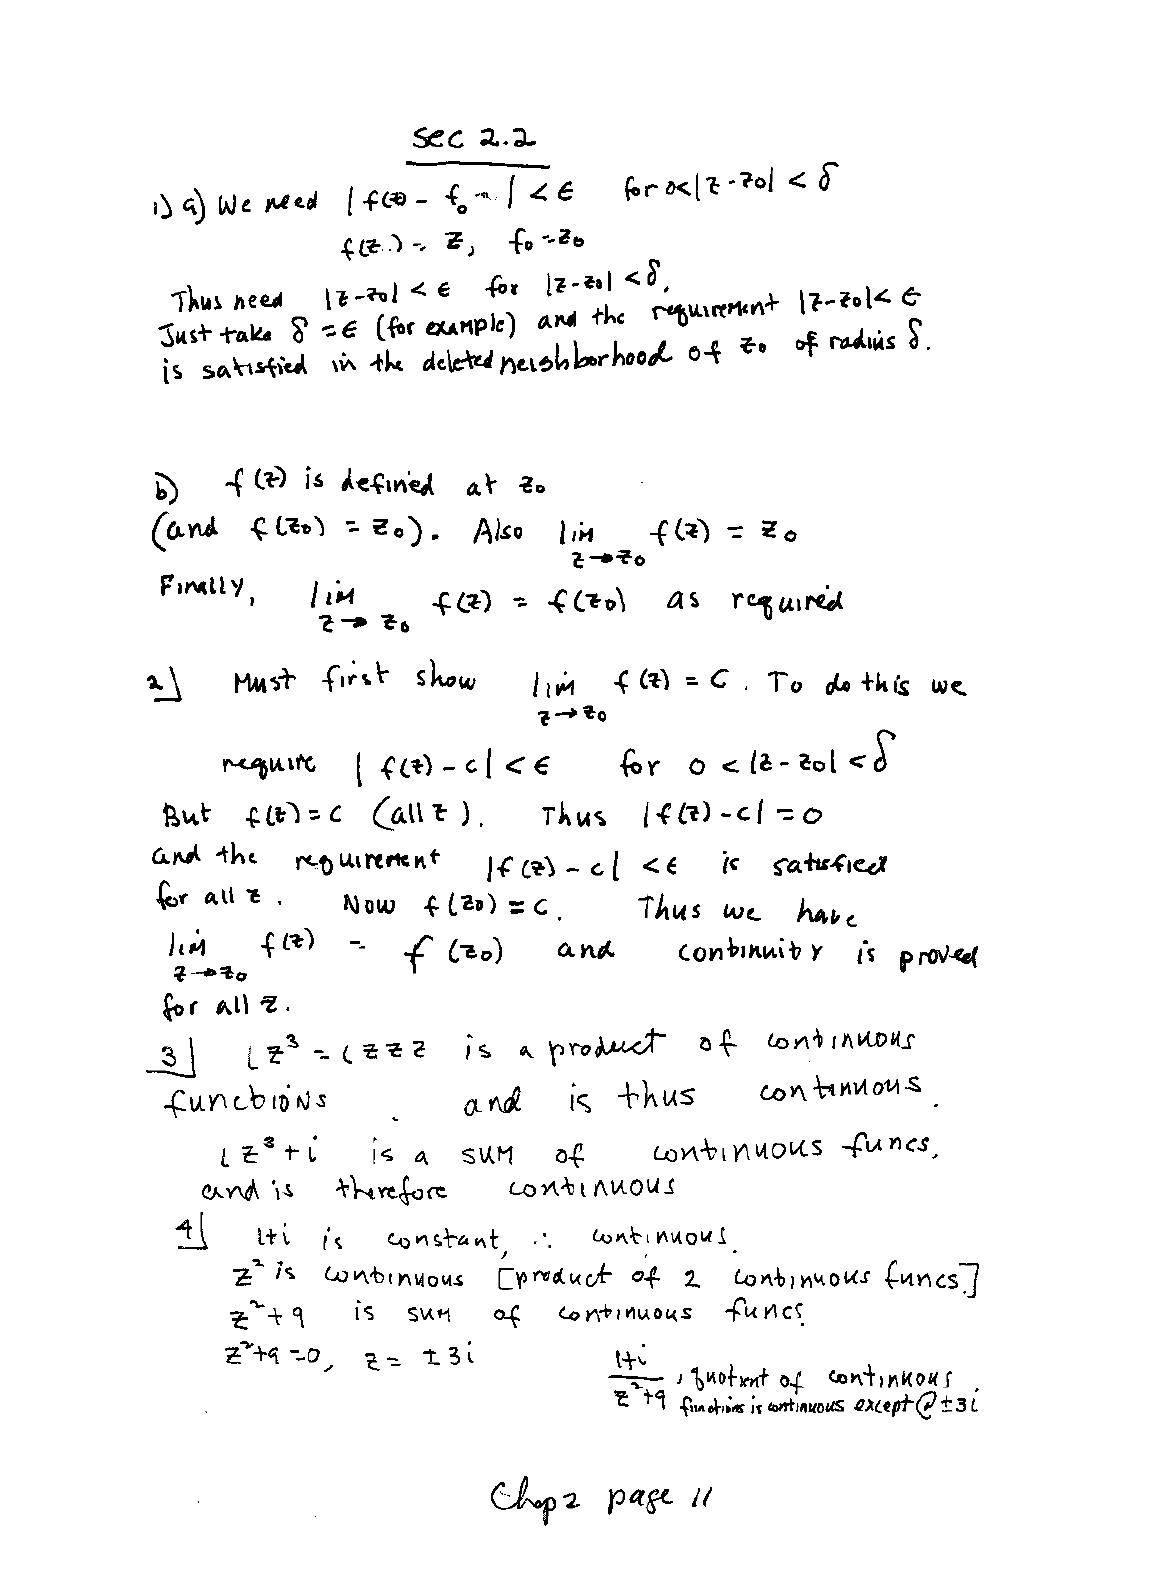 Sec 2.2
1) a) We need | f(z) - f₀ | < ϵ for 0<|z-z₀| < δ
f(z) = z, f₀ = z₀
Thus need |z-z₀| < ϵ for |z-z₀| < δ.
Just take δ = ϵ (for example) and the requirement |z-z₀| < ϵ
is satisfied in the deleted neighborhood of z₀ of radius δ.
b) f(z) is defined at z₀
(and f(z₀) = z₀). Also lim f(z) = z₀
z→z₀
Finally, lim f(z) = f(z₀) as required
z→z₀
2] Must first show lim f(z) = C. To do this we
z→z₀
require | f(z) - c | < ϵ for 0 < |z - z₀| < δ
But f(z) = c (all z). Thus |f(z) - c| = 0
and the requirement |f(z) - c| < ϵ is satisfied
for all z. Now f(z₀) = c. Thus we have
lim f(z) = f(z₀) and continuity is proved
z→z₀
for all z.
3] i z³ = i z z z is a product of continuous
functions and is thus continuous.
i z³ + i is a sum of continuous funcs,
and is therefore continuous
4] 1+i is constant, ∴ continuous.
z² is continuous [product of 2 continuous funcs]
z² + 9 is sum of continuous funcs
z²+9 = 0, z = ±3i
1+i
z²+9 , quotient of continuous
functions is continuous except @ ±3i
Chap 2 page 11